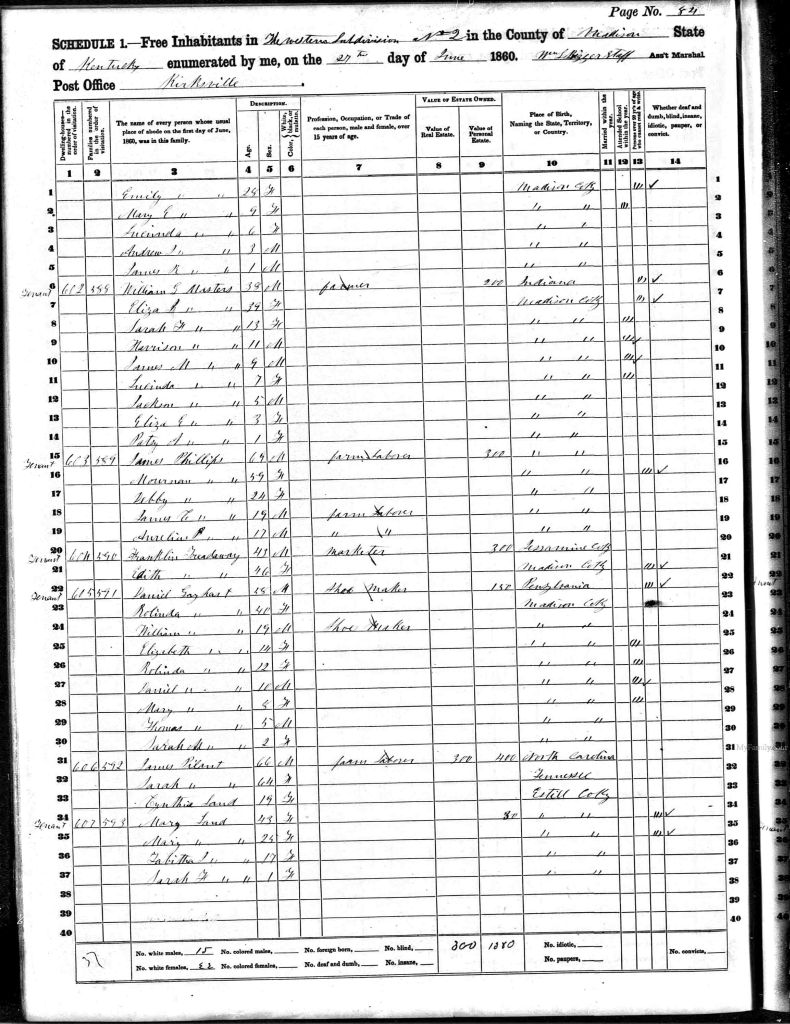 Page No. 84
SCHEDULE 1.—Free Inhabitants in The Western Subdivision No 2 in the County of Madison State
of Kentucky enumerated by me, on the 27th day of June 1860. Ass't Marshal
Post Office Kirksville
Dwelling-houses— numbered in the order of visitation.
Families numbered in the order of visitation.
The name of every person whose usual place of abode on the first day of June, 1860, was in this family.
DESCRIPTION.
Age.
Sex.
Color, White, black, or mulatto.
Profession, Occupation, or Trade of each person, male and female, over 15 years of age.
VALUE OF ESTATE OWNED.
Value of Real Estate.
Value of Personal Estate.
Place of Birth, Naming the State, Territory, or Country.
Married within the year.
Attended School within the year.
Persons over 20 y'rs of age who cannot read & write.
Whether deaf and dumb, blind, insane, idiotic, pauper, or convict.
1 2 3 4 5 6 7 8 9 10 11 12 13 14
1 Emily " " 28 F Madison Co Ky 1
2 Mary E " " 9 F " " 2
3 Lucinda " " 6 F " " 3
4 Andrew J " " 3 M " " 4
5 James R " " 1 M " " 5
6 Tenant 602 588 William G Masters 38 M farmer 200 Indiana 6
7 Eliza A " " 39 F Madison Co Ky 7
8 Sarah F " " 13 F " " 8
9 Harrison " " 11 M " " 9
10 James M " " 9 M " " 10
11 Lucinda " " 7 F " " 11
12 Jackson " " 5 M " " 12
13 Eliza E " " 3 F " " 13
14 Patsy A " " 1 F " " 14
15 Tenant 603 589 James Phillips 69 M farm Laborer 300 " " 15
16 " " 59 F " " 16
17 " " 24 F " " 17
18 James C " " 19 M farm Laborer " " 18
19 Aurelius P " " 17 M " " " " 19
20 Tenant 604 590 Franklin Treadaway 43 M marketer 300 Jessamine Co Ky 20
21 Edith " " 46 F Madison Co Ky 21
22 Tenant 605 591 Daniel M Shoe Maker 150 Pensylvania 22
23 Rolinda " " 40 F Madison Co Ky 23
24 William " " 19 M Shoe Maker " " 24
25 Elizabeth " " 14 F " " 25
26 Rolinda " " 12 F " " 26
27 Daniel " " 10 M " " 27
28 Mary " " 8 F " " 28
29 Thomas " " 5 M " " 29
30 Sarah M " " 2 F 30
31 606 592 James Pilant 66 M farm Laborer 300 400 North Carolina 31
32 Sarah " " 64 F Tennessee 32
33 Cynthia Land 19 F Estill Co Ky 33
34 Tenant 607 593 Mary Land 43 F 30 " " 34
35 Mary " " 25 F " " 35
36 Tabitha J " " 17 F " " 36
37 Sarah F " " 1 F " " 37
38 38
39 39
40 40
37 No. white males, 15 No. colored males, No. foreign born, No. blind, 300 1380 No. idiotic, No. convicts,
No. white females, 22 No. colored females, No. deaf and dumb, No. insane, No. paupers,